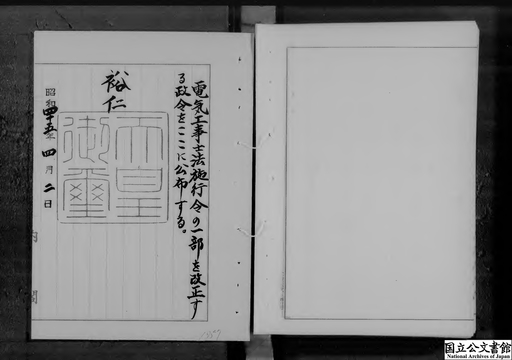 電気工事士法施行令の一部を改正す
る政令をここに公布する。
裕仁
天皇
御璽
昭和四十五年四月二日
内閣
国立公文書館
National Archives of Japan